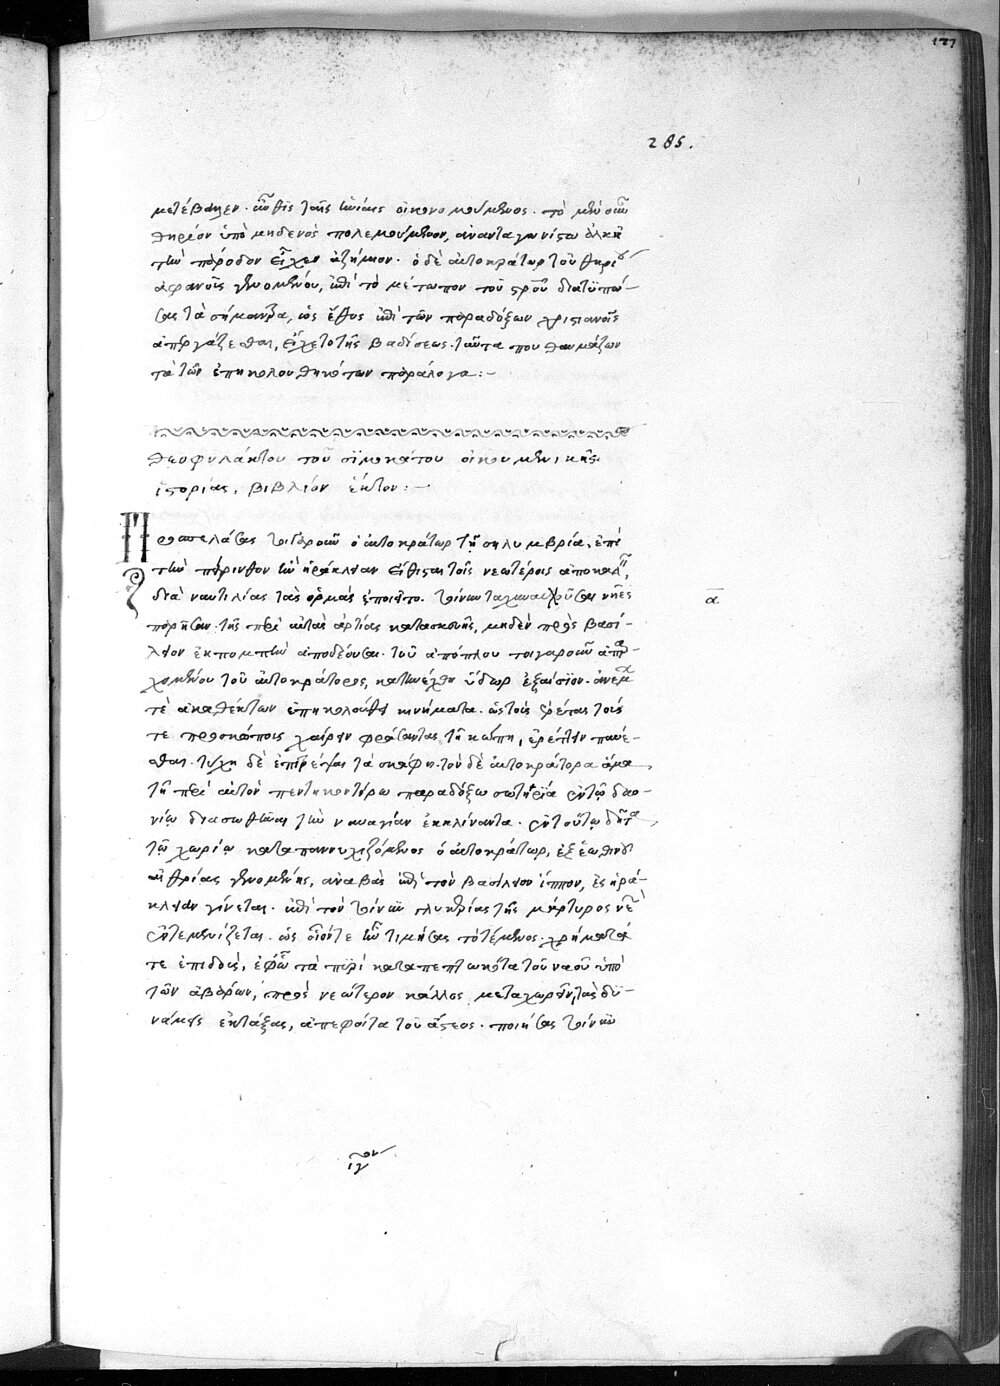 177
285.
μετέβαλεν. αὖθις ταῖς ἡνίαις οἰκονομούμενος. τὸ μὲν οὖν
θηρίον ὑπὸ μηδενὸς πολεμούμενον, ἀνανταγωνίστω ἀλκῆ
τὴν πάροδον εἶχεν ἀζήμιον. ὁ δὲ αὐτοκράτωρ τοῦ θηρίου
ἀφανοῦς γενομένου, ἐπὶ τὸ μέτωπον τοῦ σταυροῦ διατυπώ-
σας τὰ σήμαντρα, ὡς ἔθος ἐπὶ τῶν παραδόξων χριστιανοῖς
ἀπεργάζεσθαι, εἴχετο τῆς βαδίσεως. ταῦτα που θαυμάζων
τὰ τῶν ἐπηκολουθηκότων παράλογα:-
θεοφυλάκτου τοῦ σιμοκάτου οἰκουμενικῆς
ἱστορίας, βιβλίον ἕκτον:-
Προσπελάσας τοιγαροῦν ὁ αὐτοκράτωρ τῇ σηλυμβρία, ἐπὶ
τὴν πέρινθον ἣν ἡράκλειαν εἴθισται τοῖς νεωτέροις ἀποκαλεῖν,
διὰ ναυτιλίας τὰς ὁρμὰς ἐποιεῖτο. τοίνυν ταχυναυτοῦσαι νῆες
παρῆσαν. τῆς περὶ αὐτὰς ἀρτίας κατασκευῆς, μηδὲν πρὸς βασί-
λειον ἐκπομπὴν ἀποδέουσαι. τοῦ ἀπόπλου τοιγαροῦν ἀπαρ-
χομένου τοῦ αὐτοκράτορος, κατηνέχθη ὕδωρ ἐξαίσιον. ἀνέμων
τε ἀκαθέκτων ἐπηκολούθει κινήματα. ὡς τοὺς ἐρέτας τοὺς
τε προσκώποις χαίρειν φράσαντας τῇ κώπῃ, ἐρέττειν παύε-
σθαι. τύχῃ δὲ ἐπιτρέψαι τὰ σκάφη. τὸν δὲ αὐτοκράτορα ἅμα
τῇ περὶ αὐτὸν πεντηκοντόρω παραδόξω σωτηρία ἐν τῷ δαο-
νίῳ διασωθῆναι τὴν ναυαγίαν ἐκκλίναντα. ἐν τούτῳ δῆτα
τῷ χωρίῳ καταπαννυχιζόμενος ὁ αὐτοκράτωρ, ἐξ ἑωθινοῦ
αἰθρίας γενομένης, ἀναβὰς ἐπὶ τὸν βασίλειον ἵππον, ἐς ἡρά-
κλειαν γίνεται. ἐπὶ τὸν τοίνυν γλυκερίας τῆς μάρτυρος νεὼ
ἐντεμενίζεται. ὡς οἷόντε ἦν τιμήσας τὸ τέμενος. χρήματά
τε ἐπιδοὺς, ἐφ᾽ ᾧ τὰ πυρὶ καταπεπτωκότα τοῦ ναοῦ ὑπὸ
τῶν ἀβάρων, πρὸς νεώτερον κάλλος μεταχωρεῖν, τὰς δυ-
νάμεις ἐκτάξας, ἀπεφοίτα τοῦ ἄστεος. ποιήσας τοίνυν
ᾱ